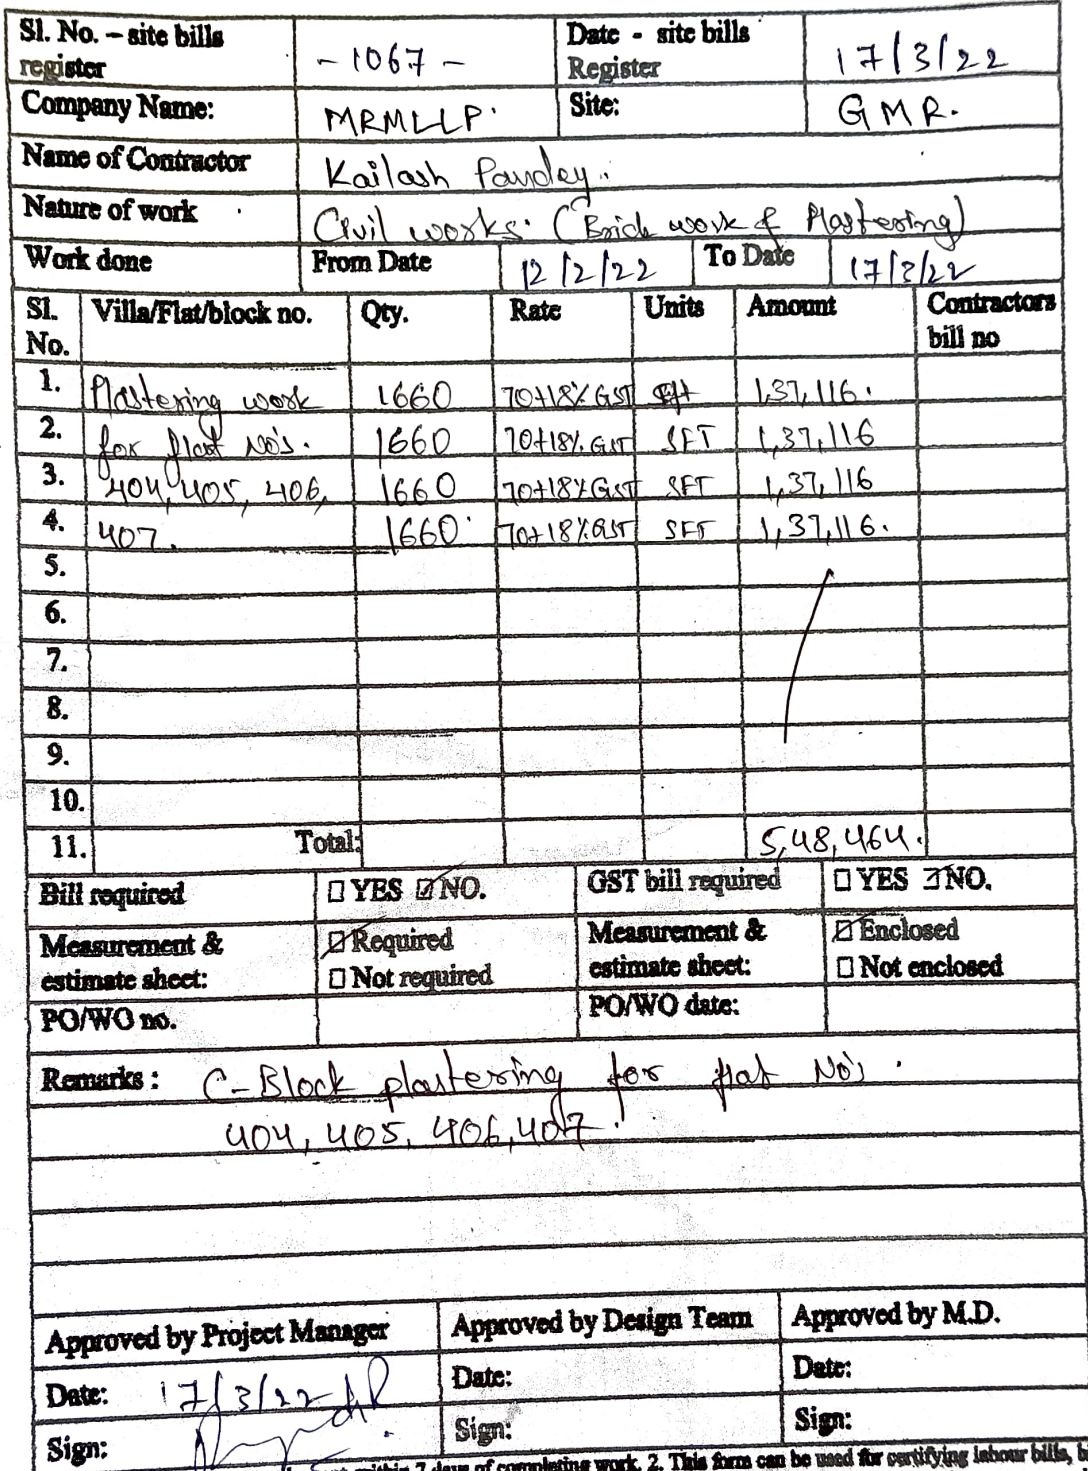 Sl. No. – site bills register - 1067 - Date - site bills Register 17/3/22
Company Name: MRMLLP. Site: GMR.
Name of Contractor Kailash Pandey.
Nature of work Civil works. (Brick work & Plastering)
Work done From Date 12/2/22 To Date 17/3/22
Sl. No. Villa/Flat/block no. Qty. Rate Units Amount Contractors bill no
1. Plastering work 1660 70+18% GST Sft 1,37,116.
2. for flat No's. 1660 70+18% GST SFT 1,37,116
3. 404, 405, 406, 1660 70+18% GST SFT 1,37,116
4. 407. 1660 70+18% GST SFT 1,37,116.
5.
6.
7.
8.
9.
10.
11. Total: 5,48,464.
Bill required ☐ YES ☑ NO. GST bill required ☐ YES ☑ NO.
Measurement & estimate sheet: ☑ Required ☐ Not required Measurement & estimate sheet: ☑ Enclosed ☐ Not enclosed
PO/WO no. PO/WO date:
Remarks : C-Block plastering for flat No's.
404, 405, 406, 407.
Approved by Project Manager Approved by Design Team Approved by M.D.
Date: 17/3/22 Date: Date:
Sign: Sign: Sign:
within 7 days of completing work. 2. This form can be used for certifying labour bills,